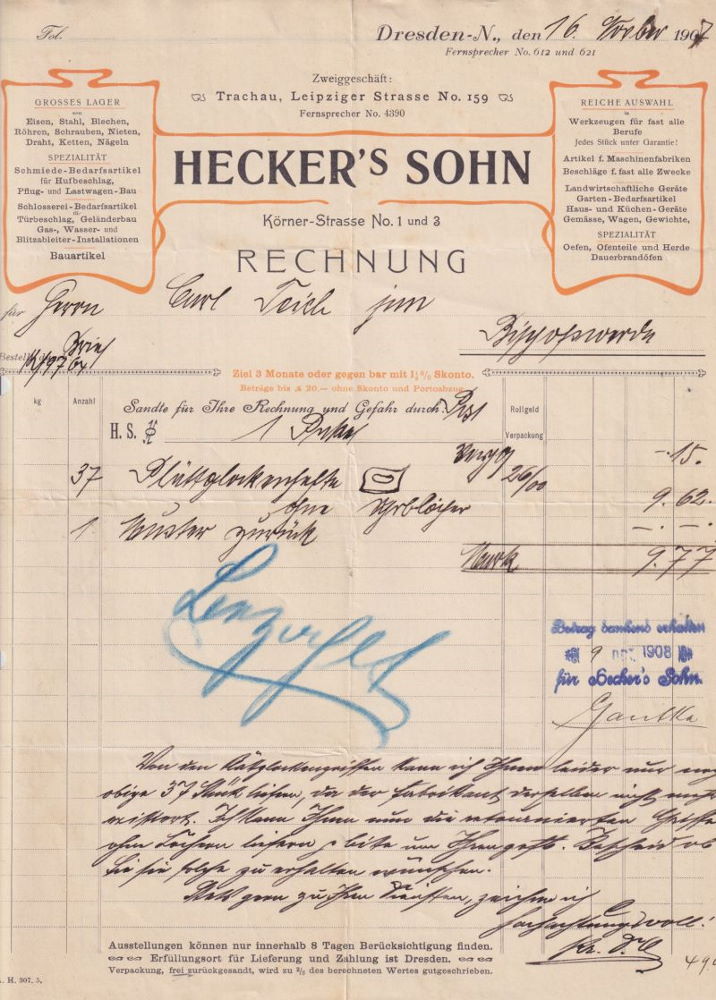 Fol.
Dresden-N., den 16. 1907
Fernsprecher No. 612 und 621
Zweiggeschäft:
Trachau, Leipziger Strasse No. 159
Fernsprecher No. 4390
GROSSES LAGER
von
Eisen, Stahl, Blechen,
Röhren, Schrauben, Nieten,
Draht, Ketten, Nägeln
SPEZIALITÄT
Schmiede-Bedarfsartikel
für Hufbeschlag,
Pflug- und Lastwagen-Bau
Schlosserei-Bedarfsartikel
für
Türbeschlag, Geländerbau
Gas-, Wasser- und
Blitzableiter-Installationen
Bauartikel
REICHE AUSWAHL
in
Werkzeugen für fast alle
Berufe
Jedes Stück unter Garantie!
Artikel f. Maschinenfabriken
Beschläge f. fast alle Zwecke
Landwirtschaftliche Geräte
Garten-Bedarfsartikel
Haus- und Küchen-Geräte
Gemässe, Wagen, Gewichte,
SPEZIALITÄT
Oefen, Ofenteile und Herde
Dauerbrandöfen
HECKER'S SOHN
Körner-Strasse No. 1 und 3
RECHNUNG
für Herrn Carl Teich jun
Bischofswerda
Ziel 3 Monate oder gegen bar mit 1½ % Skonto.
Beträge bis M 20.— ohne Skonto und Portoabzug.
kg Anzahl Sandte für Ihre Rechnung und Gefahr durch: Post Rollgeld
H. S. 1 Paket Verpackung
-.15.
37 26/00
9.62.
ohne
1 Muster zurück -.-
Mark 9.77
Betrag dankend erhalten
9 1908
für Hecker's Sohn.
ich Ihnen leider nur noch
obige 37 Stück liefern, da der Fabrikant derselben nicht mehr
existiert. Ich kann Ihnen nun die retournierten
ohne Löchern liefern & bitte um Ihren gefl. Bescheid ob
Sie solche zu erhalten wünschen.
Stets gern zu Ihren Diensten, zeichne ich
Hochachtungsvoll!
Ausstellungen können nur innerhalb 8 Tagen Berücksichtigung finden.
Erfüllungsort für Lieferung und Zahlung ist Dresden.
Verpackung, frei zurückgesandt, wird zu ⅔ des berechneten Wertes gutgeschrieben.
A. H. 307. 5.